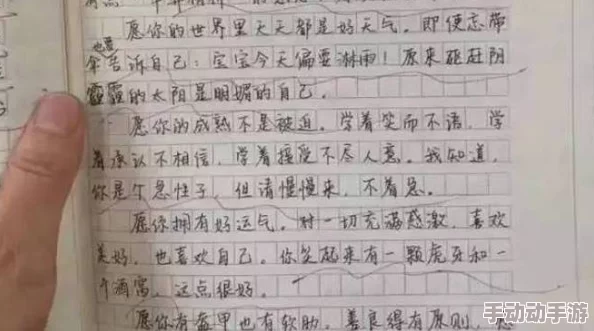 愿你的世界里天天都是好天气。即使忘带
也要
伞告诉自己:宝宝今天偏要淋雨!原来驱赶阴
霾的太阳是明媚的自己。
愿你的成熟不是被迫。学着笑而不语,学
着承认不相信,学着接受不尽人意。我知道,
你是个急性子,但请慢慢来,不着急。
愿你拥有好运气。对一切充满感激,喜欢
美好,也喜欢自己。你笑起来有一颗虎牙和一
个酒窝,这点很好。
愿你有盔甲也有软肋,善良得有原则,
手动动手游